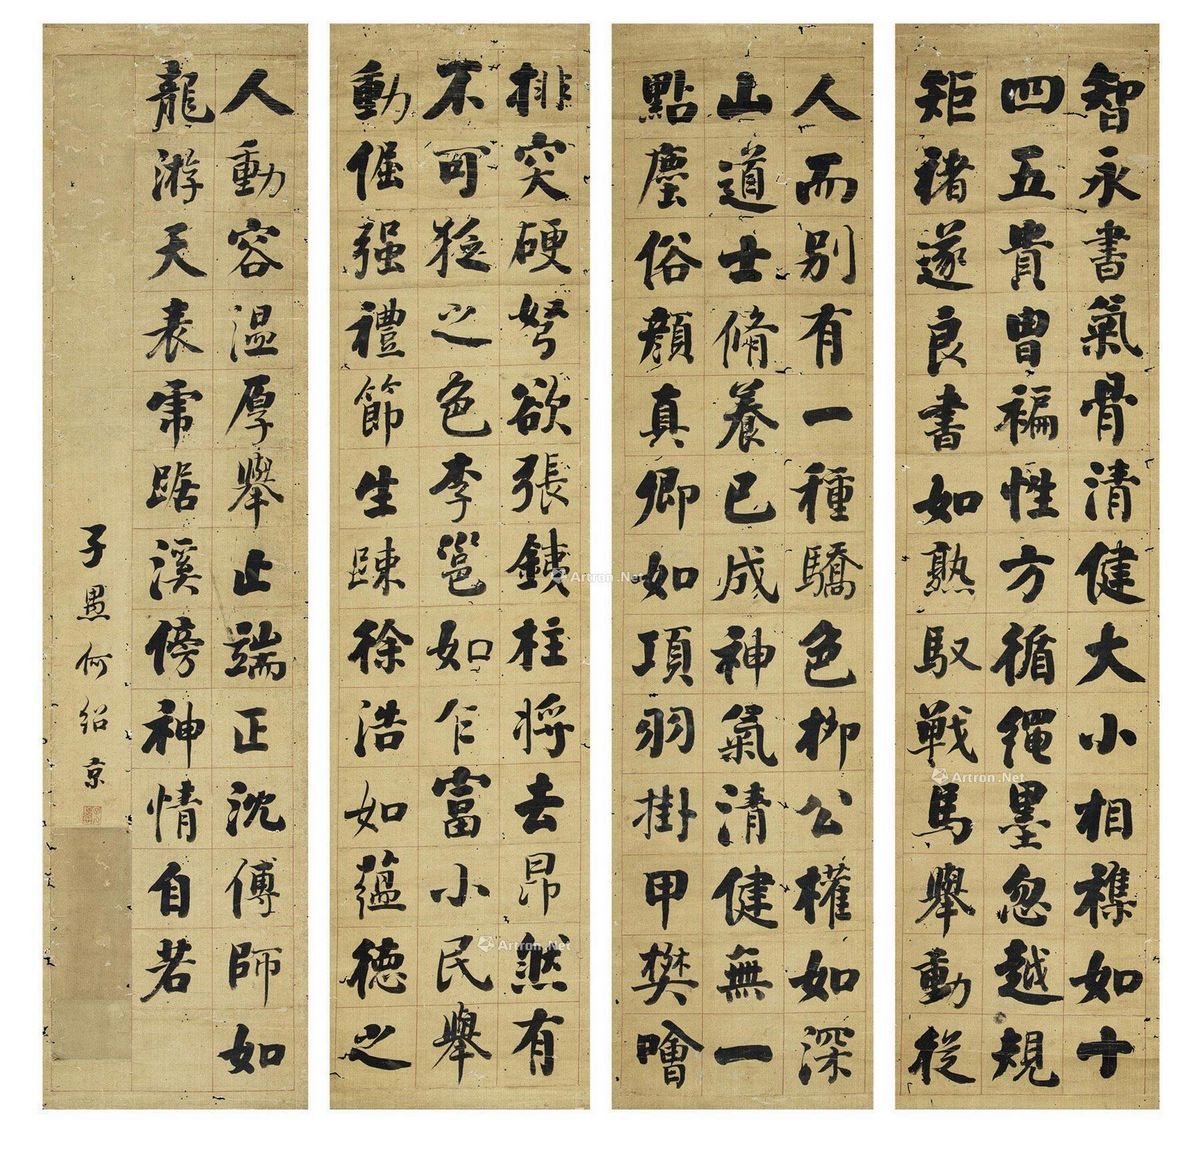 智永書氣骨清健大小相襍如十
四五貴胄褊性方循繩墨忽越規
矩褚遂良書如熟馭戰馬舉動從
人而別有一種驕色柳公權如深
山道士脩養已成神氣清健無一
點塵俗顏真卿如項羽掛甲樊噲
排突硬弩欲張銕柱將去昂然有
不可犯之色李邕如乍富小民舉
動倔强禮節生踈徐浩如蘊德之
人動容温厚舉止端正沈傅師如
龍游天表虎踞溪傍神情自若
子愚何紹京
Artron.Net
Artron.Net
Artron.Net